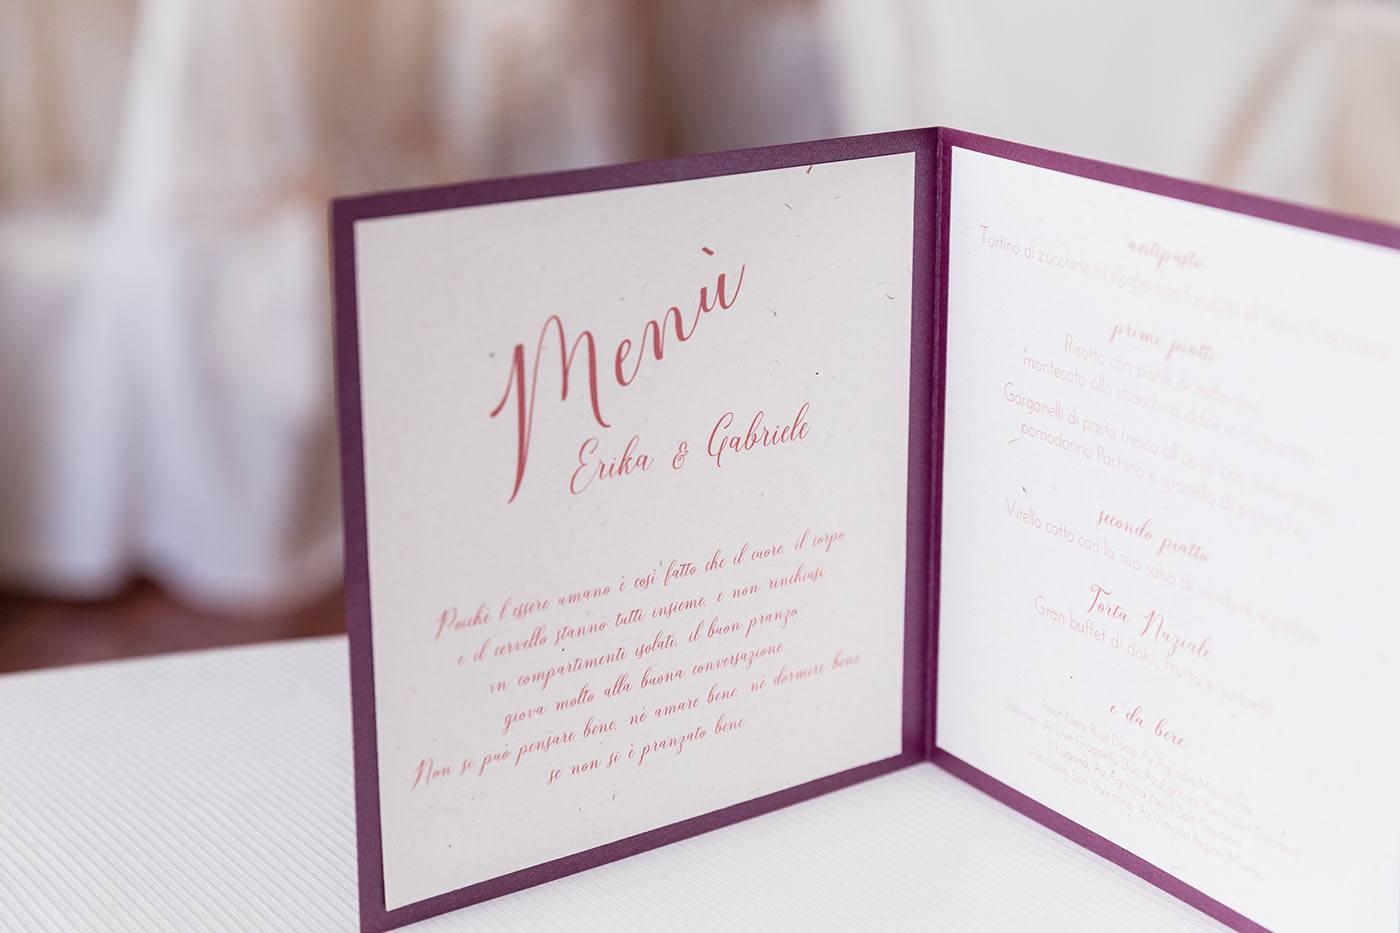 Menù
Erika & Gabriele
Poiché l'essere umano è così fatto che il cuore, il corpo
e il cervello stanno tutti insieme, e non rinchiusi
in compartimenti isolati, il buon pranzo
giova molto alla buona conversazione.
Non si può pensare bene, né amare bene, né dormire bene
se non si è pranzato bene.
antipasto
Tortino di zucchine in sfoglia con fonduta di
primi piatti
Risotto con pistilli di zafferano,
mantecato allo stracchino dolce e rosmarino
Garganelli di pasta fresca all'uovo con melanzane,
pomodorino Pachino e granella di pistacchio
secondo piatto
Vitello cotto con la sua salsa di verdure e patate
Torta Nuziale
Gran buffet di dolci, frutta e sorbetti
e da bere
Pinot Nero Brut Docg, Az.Agricola
Valtenesi da Uve Groppello Doc, Az.Agricola Pasini San Giovanni
Il Lugana, Az.Agricola Pasini San Giovanni
Asti Docg San Valentino, Az.Vinicola Beppe Marino